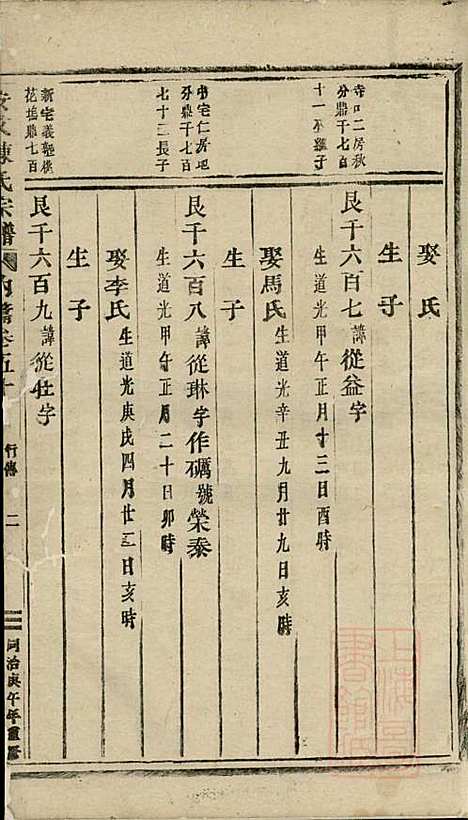 寺口二房秋
分鼎千七百
十一巫繼子
娶氏
生子
艮千六百七諱從益字
生道光甲午正月十三日酉時
娶馬氏生道光辛丑九月廿九日亥時
生子
宅仁房地
分鼎千七百
七十三長子
艮千六百八諱從琳字作礪號榮泰
生道光甲午正月二十日卯時
娶李氏生道光庚戌四月廿三日亥時
生子
新宅義
花塢鼎七百
艮千六百九諱從仕字
陳氏宗譜
行傳
二
同治庚午年重修